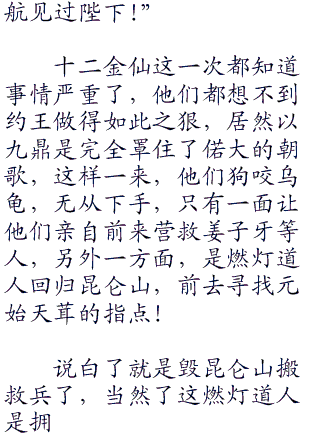 航见过陛下！”
十二金仙这一次都知道
事情严重了，他们都想不到
约王做得如此之狠，居然以
九鼎是完全罩住了偌大的朝
歌，这样一来，他们狗咬乌
龟，无从下手，只有一面让
他们亲自前来营救姜子牙等
人，另外一方面，是燃灯道
人回归昆仑山，前去寻找元
始天茸的指点！
说白了就是毁昆仑山搬
救兵了，当然了这燃灯道人
是拥